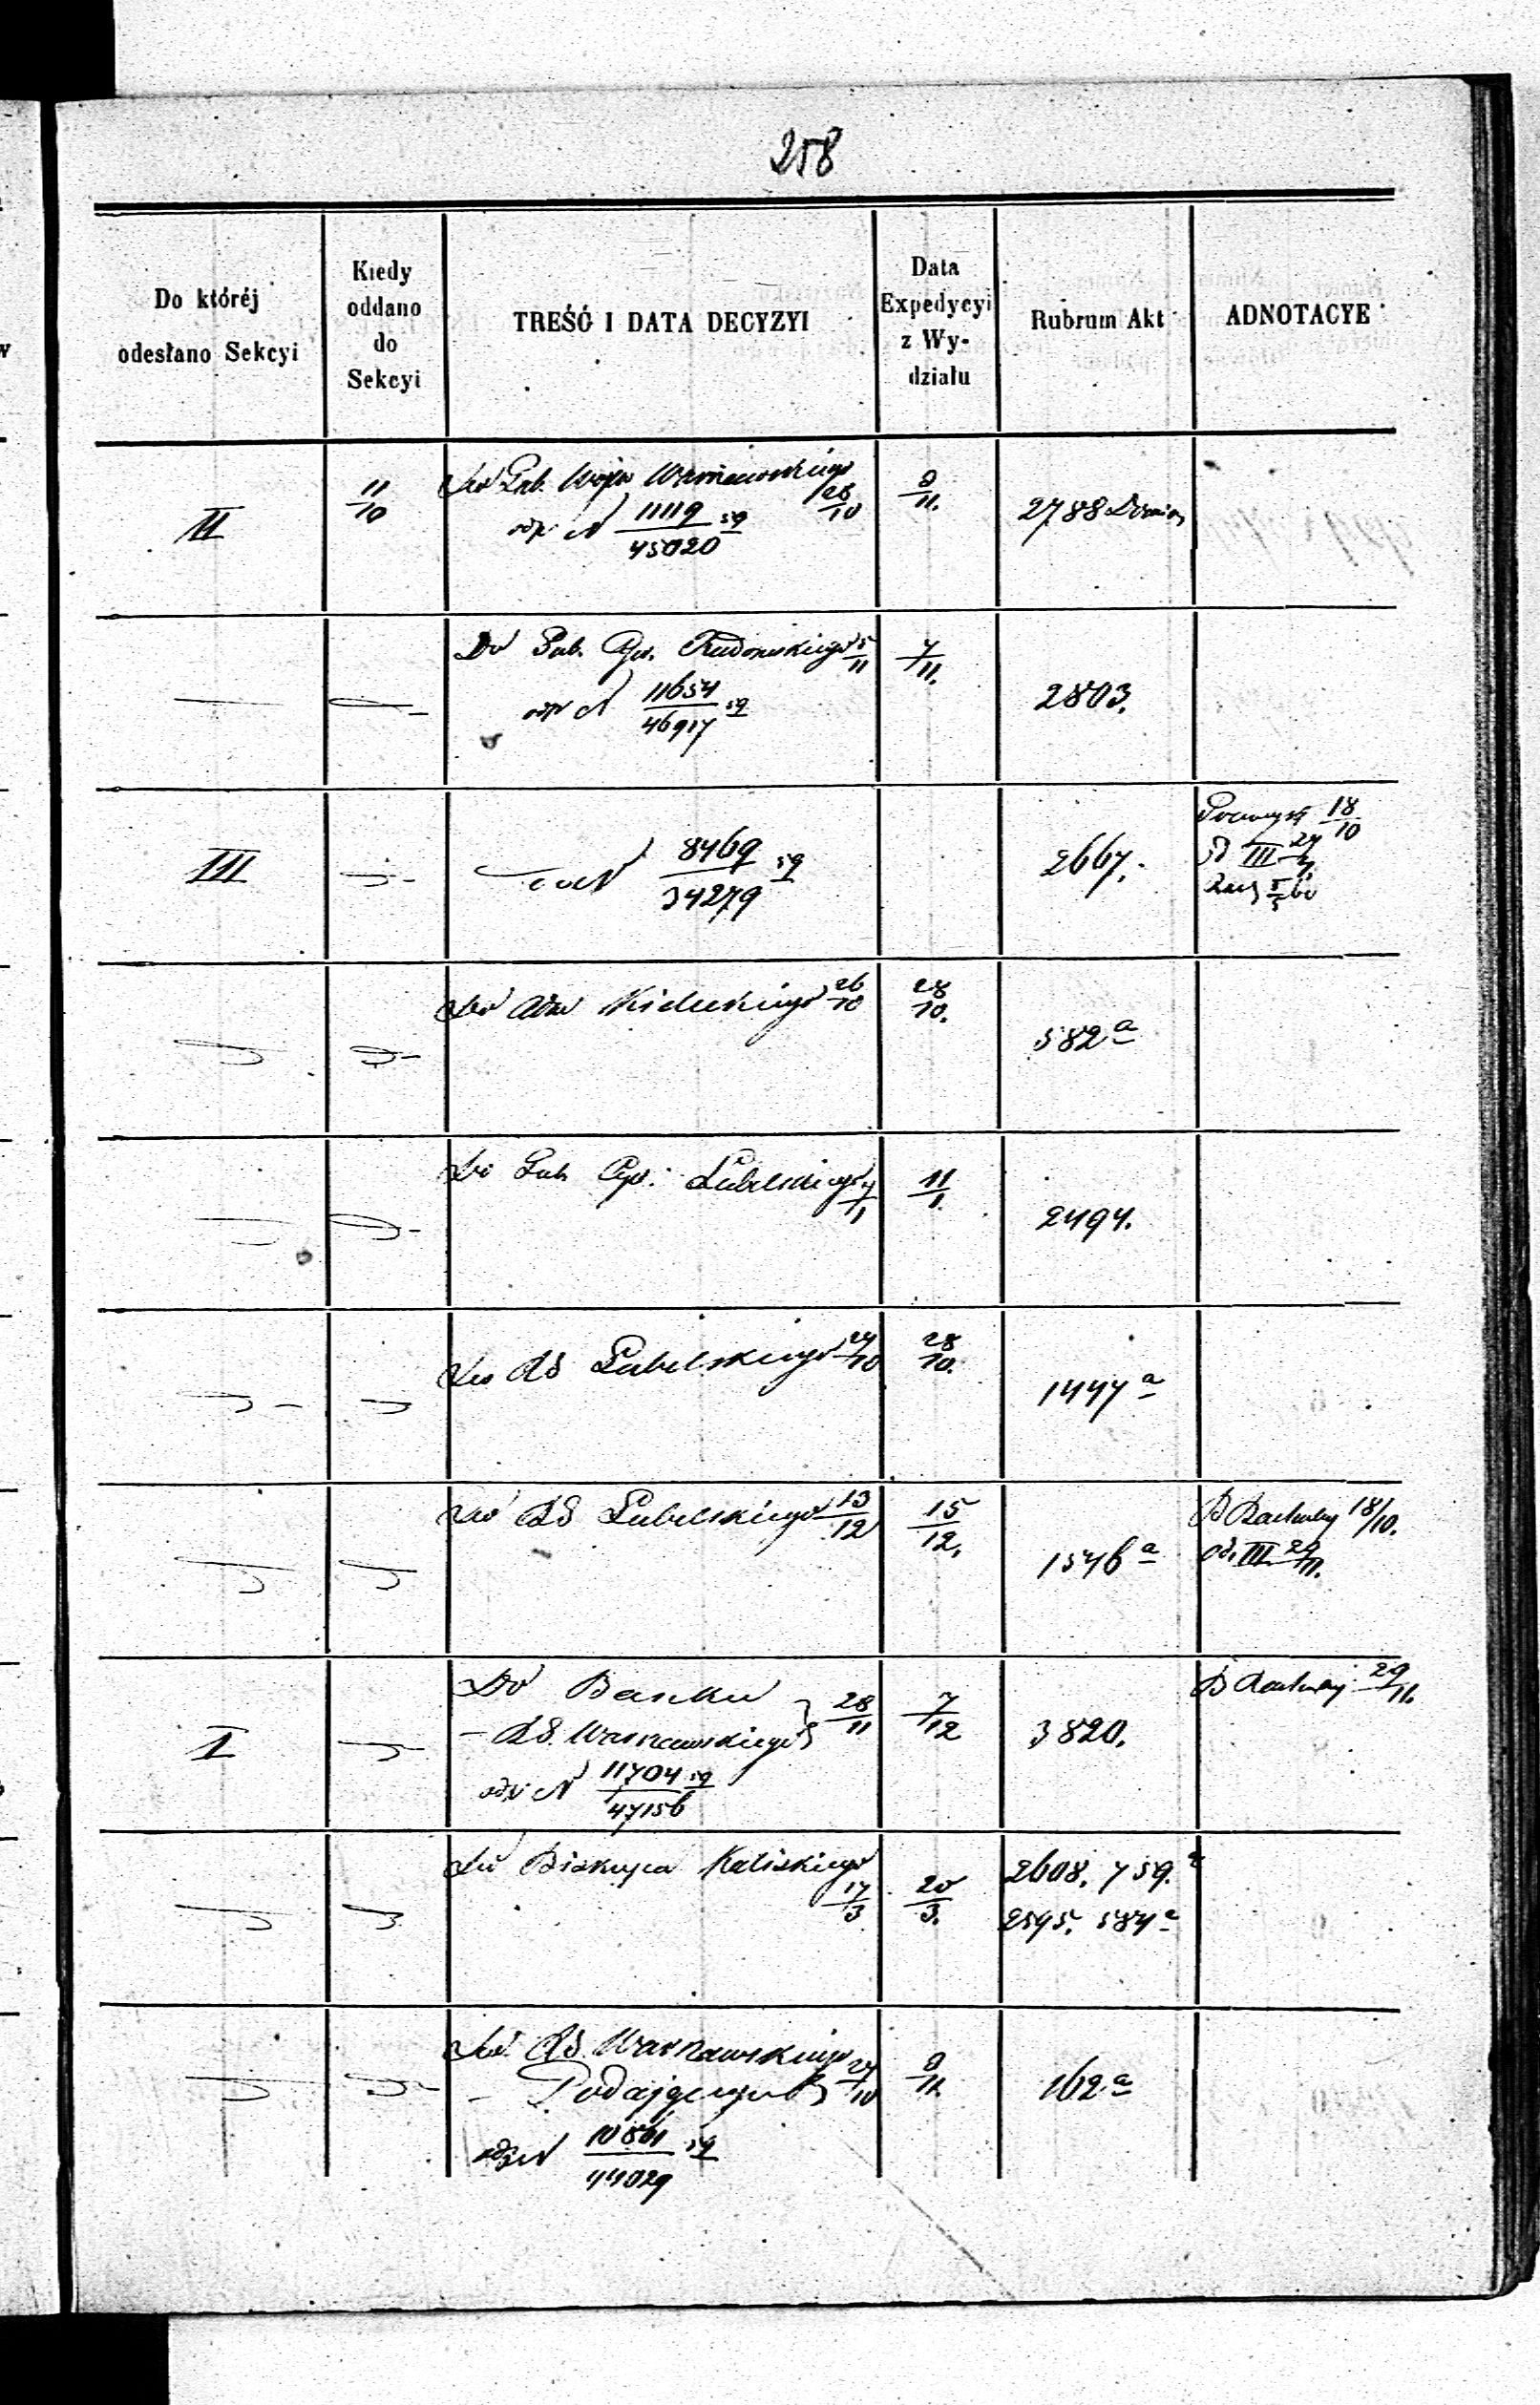 258
Do któréj odesłano Sekcyi
Kiedy oddano do Sekcyi
TREŚĆ I DATA DECYZYI
Data Expedycyi z Wy- działu
Rubrum Akt
ADNOTACYE
II
11/10
Do Gub. Warszawskiego 28/10
odp. N 11119/45020 59
9/11.
2788
Do Gub. Cyw. Radomskiego 5/11
odp N 11654/46917 59
7/11.
2803.
III
N 8469/34279 59
2667.
18/10
III
Do Adm Kieleckiego 26/10
28/10.
582 a
Do Gub Cyw. Lubelskiego 7/1
11/1.
2494.
Do RG Lubelskiego 24/10
28/10.
1447 a
Do RG Lubelskiego 13/12
15/12.
1546 a
B Rachuby 18/10.
od. III 29/11.
I
Do Banku
– RG. Warszawskiego 28/11
odp. N 11704/47156 59
7/12
3820.
B Rachuby 29/11.
Do Biskupa Kaliskiego
17/3
20/3.
2608. 759. a
2595. 584 a
Do RG. Warszawskiego
– Podającego 27/10
odp N 10861/44029 59
9/11.
162 a